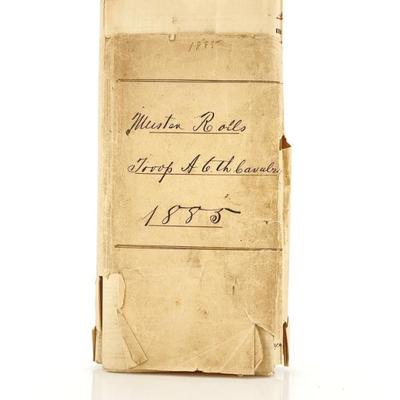 1885
Muster Rolls
Troop A 6th Cavalry
1885